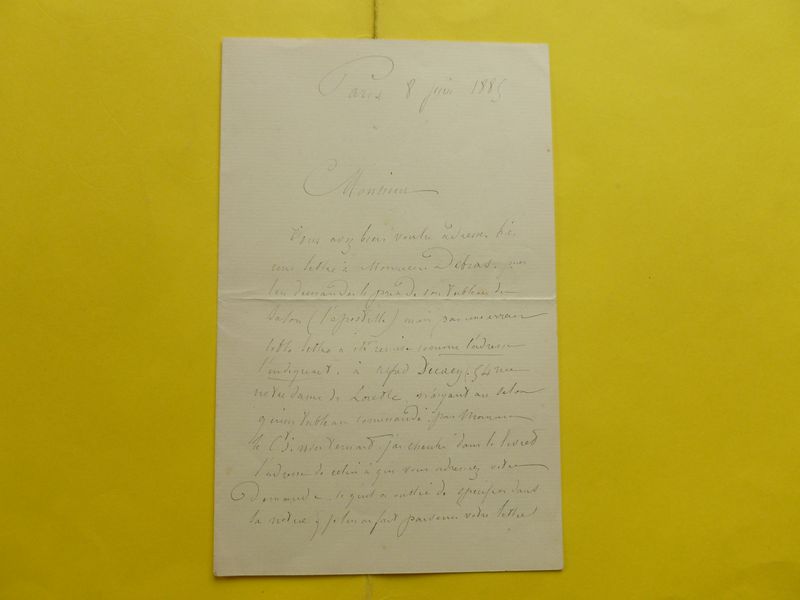 Paris 8 juin 1885
Monsieur
Vous avez bien voulu adresser hier
une lettre à Monsieur Debras, pour
lui demander le prix de son tableau du
Salon (l'apostille) mais par une erreur
cette lettre a été remise comme l'adresse
l'indiquait, à Alfred Decaen, 54 rue
notre dame de Lorette, n'ayant au Salon
qu'un tableau commandé par Monsieur
le Cte j'ai cherché dans le livret
l'adresse de celui à qui vous adressez votre
Demande, ce qu'il a oublié de spécifier dans
la notice, je lui ai fait parvenir votre lettre